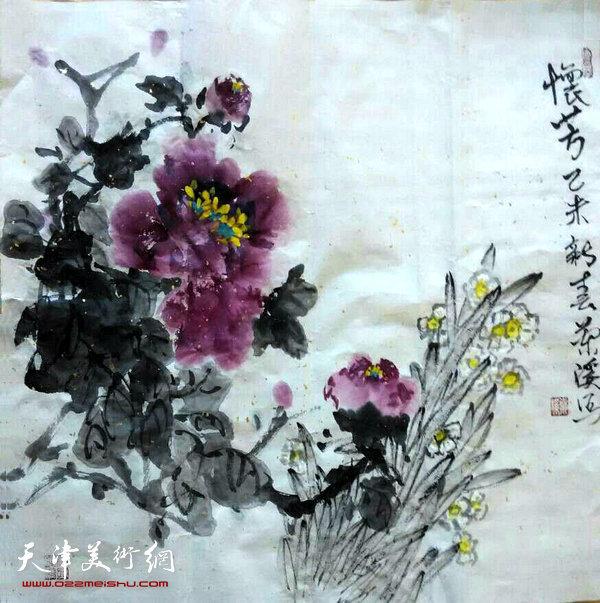 懷芳
乙未新春蘭溪写
天津美術網
www.022meishu.com